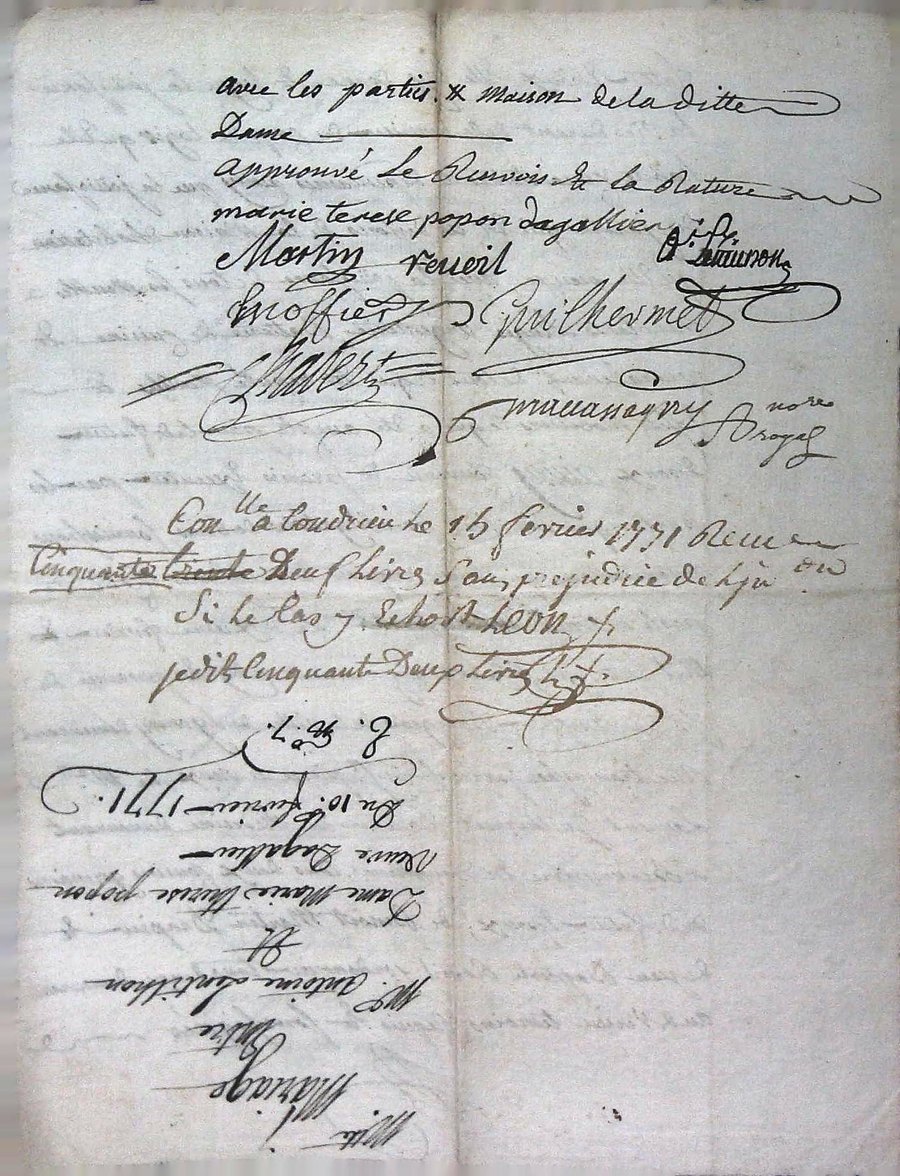 avec les parties. & maison de la ditte
Dame
approuvé Le Renvois Et la Rature
marie terese popon dagallier
Martin reveil
Guilhermet
Chabert
nore
royal
Conlle a Condrieu Le 15 fevrier 1771 Recu
Cinquante trente Deux Livres Sans prejudice de
Si le Cas y Echoit Leon
je dit Cinquante Deux Livres
Mariage
Entre
Mr. Antoine Lentillon
Et
Dame Marie therese popon
veuve Dagallier
Du 10. fevrier 1771.